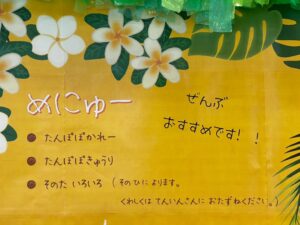 めにゅー
ぜんぶ
おすすめです!!
たんぽぽかれー
たんぽぽきゅうり
そのた いろいろ (そのひによります。
くわしくは てんいんさんに おたずねください。)